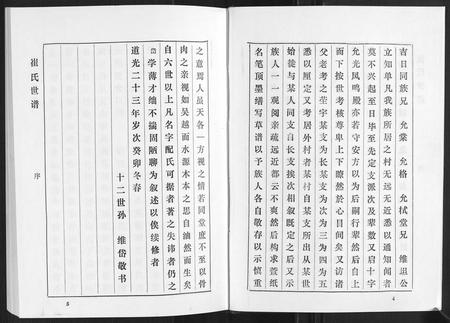 吉日同族兄 允棠 允格 允拭堂兄 维垣公
立知单凡我族所居之村无远无近悉以通知闻者
莫不兴起至日毕至先定支派次及辈数又启十字
允光凤鸣殿亦若守安方以为后嗣行辈然后自上
而下按世考核尊卑上下瞭然於心目间矣又访诸
父老考之茔宇某支为长某支为次为三为四为五
悉以厘定又考居外村者某村自某支所出从某世
始徙与某人同支自长支挨次相叙既定之后又示
族人一一观阅亲疏远近都云不爽然后构求萱纸
名笔顶墨缮写草谱以予族人各自敬存以示慎重
4
之意焉人虽天各一方视之情若同堂庶不至以骨
肉之亲视如吴越而水源木本之思自油然而生矣
自六世以上凡名字配氏可据者著之失讳者仍之
岱学薄才绌不揣固陋聊为叙述以俟续修者
道光二十三年岁次癸卯冬春
十二世孙 维岱敬书
崔氏世谱
序
5